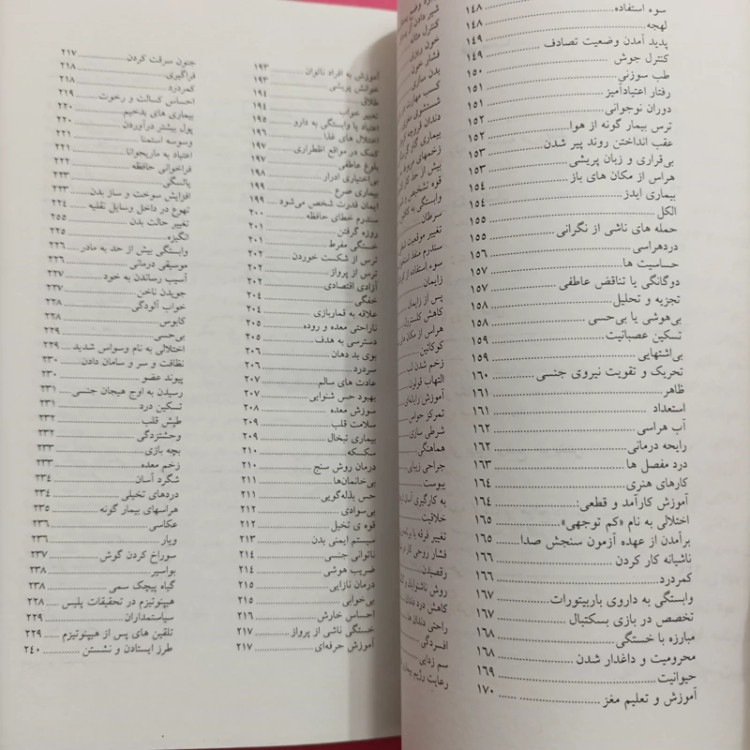 سوء استفاده ۱۴۸
لهجه ۱۴۸
پدید آمدن وضعیت تصادف ۱۴۹
کنترل جوش ۱۴۹
طب سوزنی ۱۵۰
رفتار اعتیادآمیز ۱۵۱
دوران نوجوانی ۱۵۱
ترس بیمار گونه از هوا ۱۵۲
عقب انداختن روند پیر شدن ۱۵۲
بی‌قراری و زبان پریشی ۱۵۳
هراس از مکان های باز ۱۵۳
بیماری ایدز ۱۵۴
الکل ۱۵۴
حمله های ناشی از نگرانی ۱۵۵
دردهراسی ۱۵۵
حساسیت ها ۱۵۶
دوگانگی یا تناقض عاطفی ۱۵۷
تجزیه و تحلیل ۱۵۷
بی‌هوشی یا بی‌حسی ۱۵۸
تسکین عصبانیت ۱۵۸
بی‌اشتهایی ۱۵۹
تحریک و تقویت نیروی جنسی ۱۵۹
ظاهر ۱۶۰
استعداد ۱۶۱
آب هراسی ۱۶۱
رایحه درمانی ۱۶۲
درد مفصل ها ۱۶۲
کارهای هنری ۱۶۳
آموزش کارآمد و قطعی: ۱۶۴
اختلالی به نام «کم توجهی» ۱۶۴
برآمدن از عهده آزمون سنجش صدا ۱۶۵
ناشیانه کار کردن ۱۶۵
کمردرد ۱۶۶
وابستگی به داروی باربیتورات ۱۶۶
تخصص در بازی بسکتبال ۱۶۷
مبارزه با خستگی ۱۶۷
محرومیت و داغدار شدن ۱۶۸
حیوانیت ۱۶۸
آموزش و تعلیم مغز ۱۶۹
۱۷۰
فشار خون
بدن سازی
سرطان
زایمان
پس از زایمان
کوکائین
تمرکز حواس
شرطی سازی
هماهنگی
جراحی زیبایی
یبوست
خلاقیت
رقصیدن
افسردگی
سم زدایی
آموزش به افراد ناتوان ۱۹۳
خوانش پریشی ۱۹۳
طلاق ۱۹۴
تعبیر خواب ۱۹۴
اعتیاد یا وابستگی به دارو ۱۹۵
اختلال های غذا ۱۹۶
کمک در مواقع اظطراری ۱۹۷
بلوغ عاطفی ۱۹۷
بی‌اختیاری ادرار ۱۹۸
بیماری صرع ۱۹۹
ایمان قدرت شخص می‌شود ۱۹۹
سندرم خطای حافظه ۲۰۰
روزه گرفتن ۲۰۱
خستگی مفرط ۲۰۱
ترس از شکست خوردن ۲۰۲
ترس از پرواز ۲۰۲
آزادی اقتصادی ۲۰۴
خفگی ۲۰۴
علاقه به قماربازی ۲۰۴
ناراحتی معده و روده ۲۰۵
دسترسی به هدف ۲۰۵
بوی بد دهان ۲۰۶
سردرد ۲۰۶
عادت های سالم ۲۰۷
بهبود حس شنوایی ۲۰۷
سوزش معده ۲۰۸
سلامت قلب ۲۰۹
بیماری تبخال ۲۰۹
سکسکه ۲۱۰
درمان روش سنج ۲۱۰
بی‌خانمان‌ها ۲۱۱
حس بذله‌گویی ۲۱۱
بی‌سوادی ۲۱۲
قوه ی تخیل ۲۱۲
سیستم ایمنی بدن ۲۱۳
ناتوانی جنسی ۲۱۴
ضریب هوشی ۲۱۴
درمان نازایی ۲۱۵
بی‌خوابی ۲۱۵
احساس خارش ۲۱۶
خستگی ناشی از پرواز ۲۱۷
آموزش حرفه‌ای ۲۱۷
جنون سرقت کردن ۲۱۷
فراگیری ۲۱۸
کمردرد ۲۱۸
احساس کسالت و رخوت ۲۱۹
بیماری های بدخیم ۲۲۰
پول بیشتر درآوردن ۲۲۰
وسوسه استمنا ۲۲۱
اعتیاد به ماریجوانا ۲۲۱
فراخوانی حافظه ۲۲۲
یائسگی ۲۲۳
افزایش سوخت و ساز بدن ۲۲۳
تهوع در داخل وسایل نقلیه ۲۲۴
تغییر حالت بدن ۲۵۵
انگیزه ۲۲۵
وابستگی بیش از حد به مادر ۲۲۶
موسیقی درمانی ۲۲۶
آسیب رساندن به خود ۲۲۷
جویدن ناخن ۲۲۷
خواب آلودگی ۲۲۸
کابوس ۲۲۸
بی‌حسی ۲۲۹
اختلالی به نام وسواس شدید ۲۲۹
نظافت و سر و سامان دادن ۲۳۰
پیوند عضو ۲۳۰
رسیدن به اوج هیجان جنسی ۲۳۱
تسکین درد ۲۳۱
طپش قلب ۲۳۲
وحشتزدگی ۲۳۲
بچه بازی ۲۳۳
زخم معده ۲۳۳
شگرد آسان ۲۳۴
دردهای تخیلی ۲۳۴
هراسهای بیمار گونه ۲۳۵
عکاسی ۲۳۶
ویار ۲۳۶
سوراخ کردن گوش ۲۳۷
بواسیر ۲۳۸
گیاه پیچک سمی ۲۳۸
هیپنوتیزم در تحقیقات پلیس ۲۲۸
سیاستمداران ۲۳۹
تلقین های پس از هیپنوتیزم ۲۳۹
طرز ایستادن و نشستن ۲۴۰